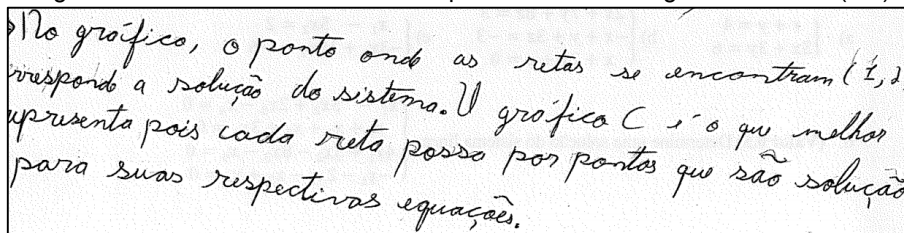 No gráfico, o ponto onde as retas se encontram (1,2
rresponde a solução do sistema. O gráfico C é o que melhor
upresenta pois cada reta passa por pontos que são solução
para suas respectivas equações.